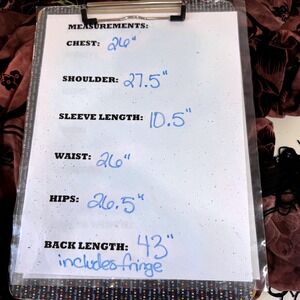 MEASUREMENTS:
CHEST: 26"
SHOULDER: 27.5"
SLEEVE LENGTH: 10.5"
WAIST: 26"
HIPS: 26.5"
BACK LENGTH: 43"
includes fringe